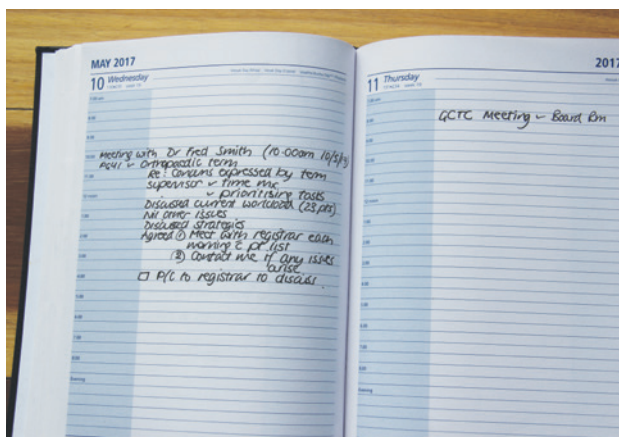 MAY 2017
10 Wednesday
Meeting with Dr Fred Smith (10.00am 10/5/17)
PGY1 - Orthopaedic term
Re: Concerns expressed by term
supervisor - time mx
- prioritising tasks
Discussed current workload (23 pts)
Nil other issues
Discussed strategies
Agreed ① Meet with registrar each
morning c pt list
② Contact me if any issues
arise
□ P/C to registrar to discuss.
2017
11 Thursday
GCTC Meeting - Board Rm